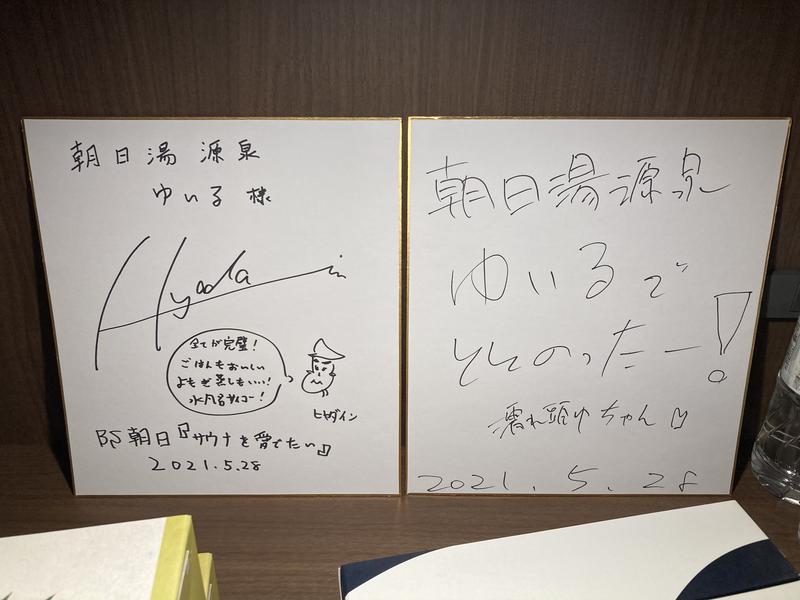 朝日湯源泉
ゆいる様
Hyadain
全てが完璧!
ごはんもおいしい
よもぎ蒸しもいい!
水風呂サイコー!
ヒャダイン
BS朝日『サウナを愛でたい』
2021.5.28
朝日湯源泉
ゆいるで
ととのったー!
濡れ頭巾ちゃん
2021.5.28